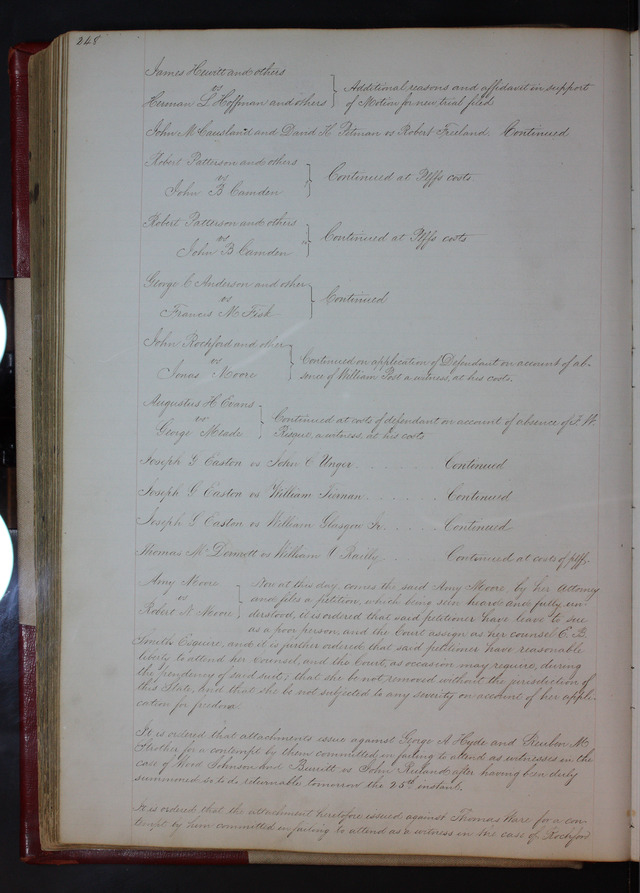 248
James Hewitt and others
vs
Herman L Hoffman and others
Additional reasons and affidavit in support
of Motion for new trial filed
John McCausland and David H Pitman vs Robert Freeland Continued
Robert Patterson and others
vs
John B Camden
Continued at Plffs costs
Robert Patterson and others
vs
John B Camden
Continued at Plffs costs
George C Anderson and other
vs
Francis M Fisk
Continued
John Rochford and other
vs
Jonas Moore
Continued on application of Defendant on account of ab-
sence of William Post a witness, at his costs.
Augustus H Evans
vs
George Meade
Continued at costs of defendant on account of absence of W.
Risque, a witness, at his costs
Joseph G Easton vs John C Unger . . . . . Continued
Joseph G Easton vs William Tiernan . . . . . Continued
Joseph G Easton vs William Glasgow Jr. . . . . Continued
Thomas McDermott vs William Reilly . . Continued at costs of plff.
Amy Moore
vs
Robert N Moore
Now at this day, comes the said Amy Moore by her Attorney
and files a petition, which being seen heard and fully un-
derstood, it is ordered that said petitioner have leave to sue
as a poor person, and the Court assign as her counsel C. B.
Smith Esquire, and it is further ordered that said petitioner have reasonable
liberty to attend her counsel, and the Court, as occasion may require, during
the pendency of said suit; that she be not removed without the jurisdiction of
this State, and that she be not subjected to any severity on account of her appli-
cation for freedom.
It is ordered that attachments issue against George A Hyde and Reuben M
Struther for a contempt by them committed in failing to attend as witnesses in the
case of Wood Johnson and Burritt vs John Ruland after having been duly
summoned so to do returnable tomorrow the 25th instant.
It is ordered that the attachment heretofore issued against Thomas Hare for a con-
tempt by him committed in failing to attend as a witness in the case of Rochford